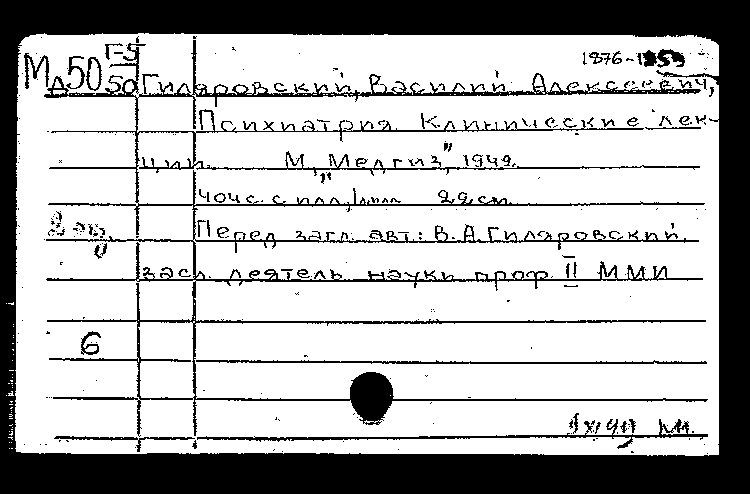 1876-1959
Мд50 Г-5
50
Гиляровский, Василий Алексеевич,
Психиатрия. Клинические лек-
ции. М, „Медгиз", 1949.
404с. с илл, 22см.
2 экз.
Перед загл. авт: В.А.Гиляровский,
засл. деятель науки проф. II ММИ
6